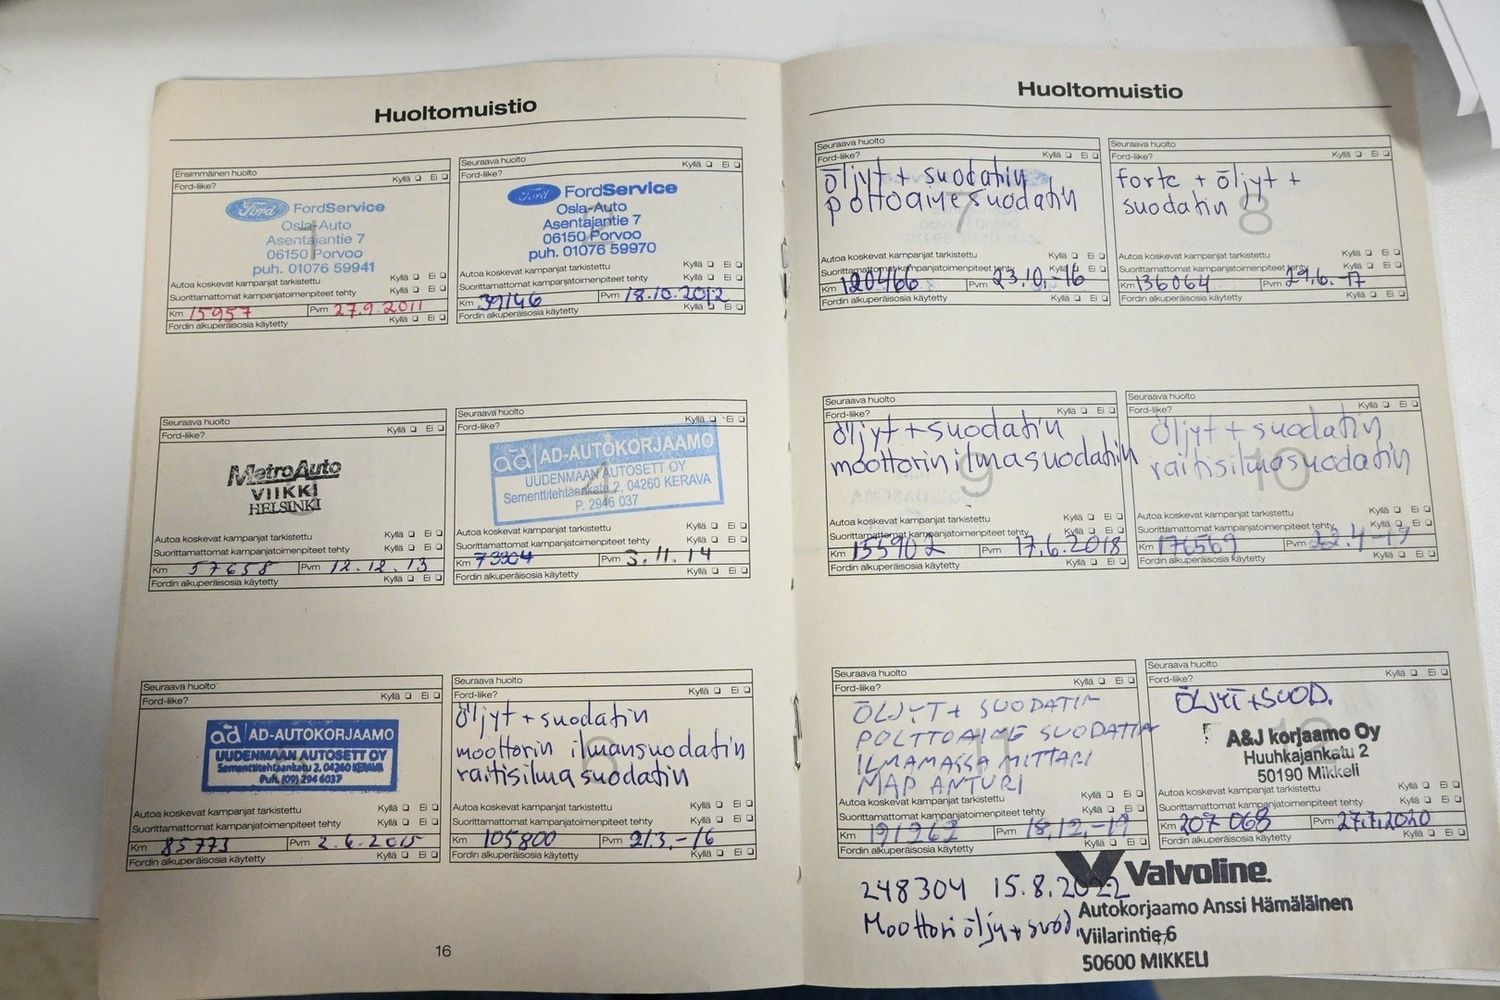 Huoltomuistio
Ensimmäinen huolto
Ford-liike? Kyllä Ei
Ford FordService
Osla-Auto
Asentajantie 7
06150 Porvoo
puh. 01076 59941
1
Autoa koskevat kampanjat tarkistettu Kyllä Ei
Suorittamattomat kampanjatoimenpiteet tehty Kyllä Ei
Km 15957 Pvm 27.9.2011
Fordin alkuperäisosia käytetty Kyllä Ei
Seuraava huolto
Ford-liike? Kyllä Ei
Ford FordService
Osla-Auto
Asentajantie 7
06150 Porvoo
puh. 01076 59970
2
Autoa koskevat kampanjat tarkistettu Kyllä Ei
Suorittamattomat kampanjatoimenpiteet tehty Kyllä Ei
Km 39146 Pvm 18.10.2012
Fordin alkuperäisosia käytetty Kyllä Ei
Seuraava huolto
Ford-liike? Kyllä Ei
MetroAuto
VIIKKI
HELSINKI
Autoa koskevat kampanjat tarkistettu Kyllä Ei
Suorittamattomat kampanjatoimenpiteet tehty Kyllä Ei
Km 57658 Pvm 12.12.13
Fordin alkuperäisosia käytetty Kyllä Ei
Seuraava huolto
Ford-liike? Kyllä Ei
ad AD-AUTOKORJAAMO
UUDENMAAN AUTOSETT OY
Sementtitehtaankatu 2, 04260 KERAVA
P. 2946 037
4
Autoa koskevat kampanjat tarkistettu Kyllä Ei
Suorittamattomat kampanjatoimenpiteet tehty Kyllä Ei
Km 73304 Pvm 3.11.14
Fordin alkuperäisosia käytetty Kyllä Ei
Seuraava huolto
Ford-liike? Kyllä Ei
ad AD-AUTOKORJAAMO
UUDENMAAN AUTOSETT OY
Sementtitehtaankatu 2, 04260 KERAVA
Puh. (09) 294 6037
Autoa koskevat kampanjat tarkistettu Kyllä Ei
Suorittamattomat kampanjatoimenpiteet tehty Kyllä Ei
Km 85773 Pvm 2.6.2015
Fordin alkuperäisosia käytetty Kyllä Ei
Seuraava huolto
Ford-liike? Kyllä Ei
öljyt + suodatin
moottorin ilmansuodatin
raitisilmasuodatin
6
Autoa koskevat kampanjat tarkistettu Kyllä Ei
Suorittamattomat kampanjatoimenpiteet tehty Kyllä Ei
Km 105800 Pvm 21.3.-16
Fordin alkuperäisosia käytetty Kyllä Ei
16
Huoltomuistio
Seuraava huolto
Ford-liike? Kyllä Ei
öljyt + suodatin
polttoainesuodatin
7
Autoa koskevat kampanjat tarkistettu Kyllä Ei
Suorittamattomat kampanjatoimenpiteet tehty Kyllä Ei
Km 120466 Pvm 23.10.-16
Fordin alkuperäisosia käytetty Kyllä Ei
Seuraava huolto
Ford-liike? Kyllä Ei
forte + öljyt +
suodatin
8
Autoa koskevat kampanjat tarkistettu Kyllä Ei
Suorittamattomat kampanjatoimenpiteet tehty Kyllä Ei
Km 136064 Pvm 29.6.-17
Fordin alkuperäisosia käytetty Kyllä Ei
Seuraava huolto
Ford-liike? Kyllä Ei
öljyt + suodatin
moottorin ilmasuodatin
9
Autoa koskevat kampanjat tarkistettu Kyllä Ei
Suorittamattomat kampanjatoimenpiteet tehty Kyllä Ei
Km 155902 Pvm 17.6.2018
Fordin alkuperäisosia käytetty Kyllä Ei
Seuraava huolto
Ford-liike? Kyllä Ei
öljyt + suodatin
raitisilmasuodatin
10
Autoa koskevat kampanjat tarkistettu Kyllä Ei
Suorittamattomat kampanjatoimenpiteet tehty Kyllä Ei
Km 176569 Pvm
Fordin alkuperäisosia käytetty Kyllä Ei
Seuraava huolto
Ford-liike? Kyllä Ei
ÖLJYT + SUODATIN
POLTTOAINE SUODATIN
ILMAMASSA MITTARI
MAP ANTURI
11
Autoa koskevat kampanjat tarkistettu Kyllä Ei
Suorittamattomat kampanjatoimenpiteet tehty Kyllä Ei
Km 191262 Pvm 18.12.-19
Fordin alkuperäisosia käytetty Kyllä Ei
Seuraava huolto
Ford-liike? Kyllä Ei
ÖLJYT+SUOD.
12
A&J korjaamo Oy
Huuhkajankatu 2
50190 Mikkeli
Autoa koskevat kampanjat tarkistettu Kyllä Ei
Suorittamattomat kampanjatoimenpiteet tehty Kyllä Ei
Km 207068 Pvm 27.7.2020
Fordin alkuperäisosia käytetty Kyllä Ei
248304 15.8.2022
Moottoriöljy+suod.
Valvoline
Autokorjaamo Anssi Hämäläinen
Viilarintie 6
50600 MIKKELI